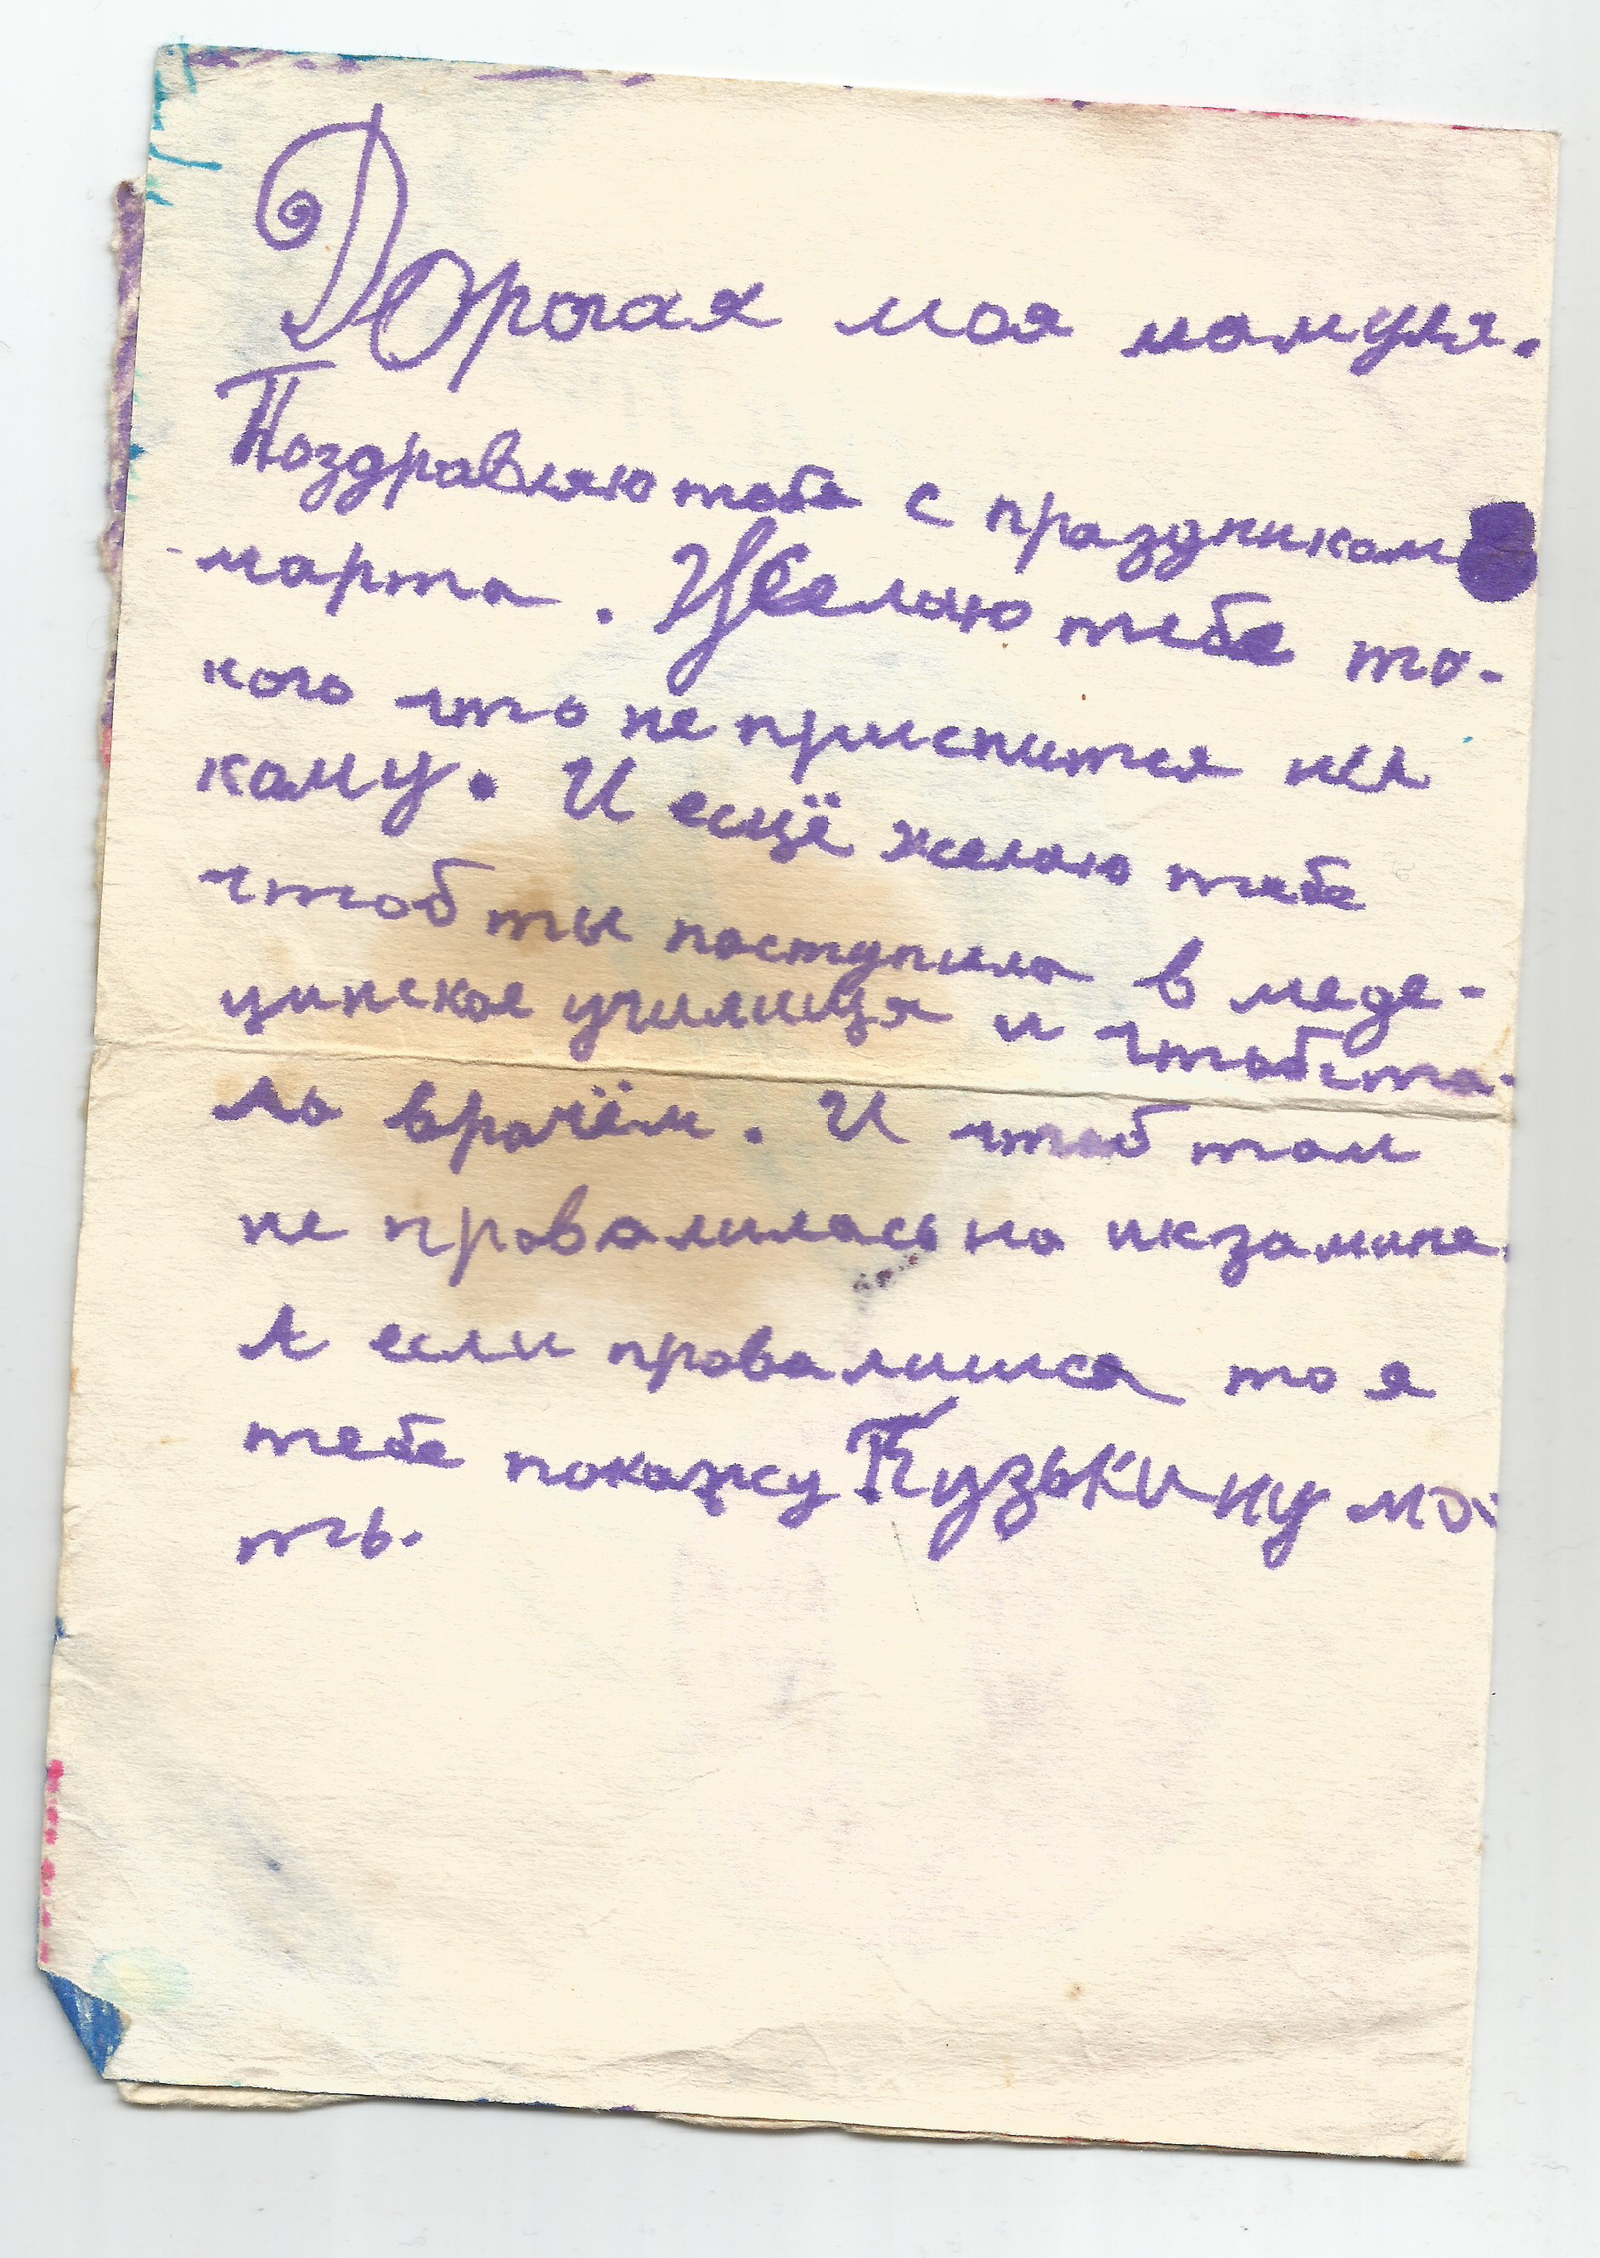 Дорогая моя мамуля.
Поздравляю тебя с праздникам 8
марта. Желаю тебе та-
кого что не приснится ни
каму. И есщё желаю тебе
чтоб ты паступила в меде-
цинскае училищя и чтоб ста-
ла врачём. И чтоб там
не провалилась на икзамине.
А если провалишся то я
тебе покажу Кузькину ма-
ть.